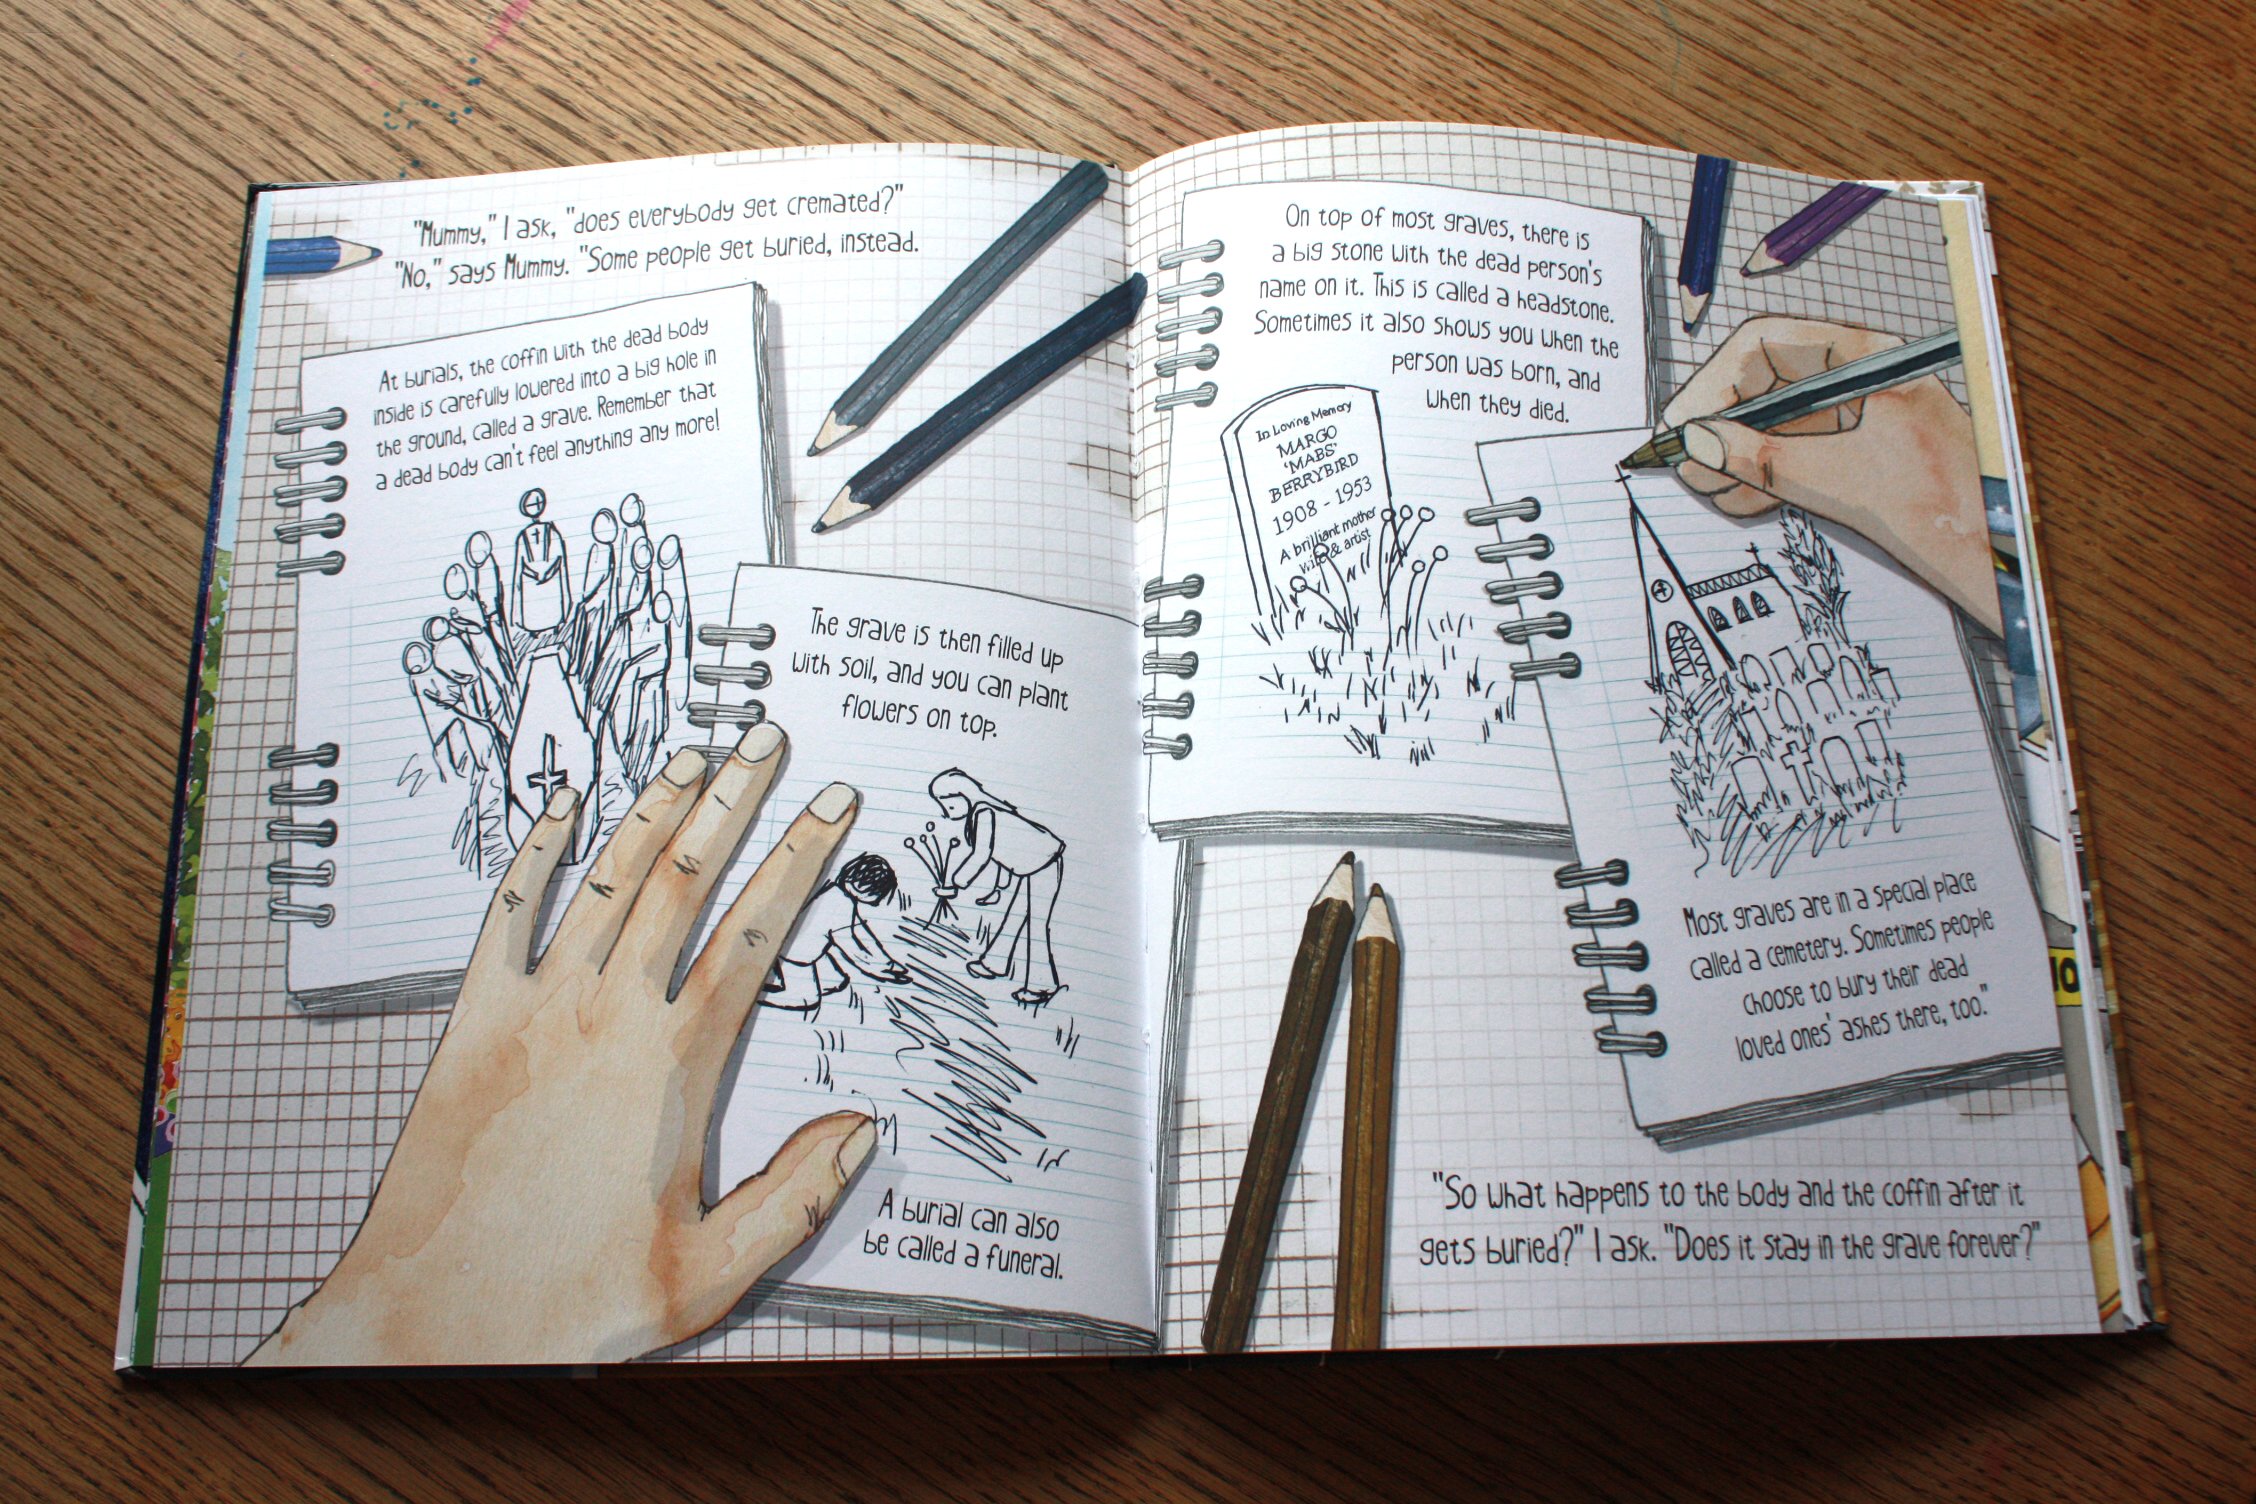 "Mummy," I ask, "does everybody get cremated?"
"No," says Mummy. "Some people get buried, instead.
At burials, the coffin with the dead body
inside is carefully lowered into a big hole in
the ground, called a grave. Remember that
a dead body can't feel anything any more!
The grave is then filled up
with soil, and you can plant
flowers on top.
A burial can also
be called a funeral.
On top of most graves, there is
a big stone with the dead person's
name on it. This is called a headstone.
Sometimes it also shows you when the
person was born, and
when they died.
In Loving Memory
MARGO
'MABS'
BERRYBIRD
1908 - 1953
A brilliant mother
wife & artist
Most graves are in a special place
called a cemetery. Sometimes people
choose to bury their dead
loved ones' ashes there, too."
"So what happens to the body and the coffin after it
gets buried?" I ask. "Does it stay in the grave forever?"
10